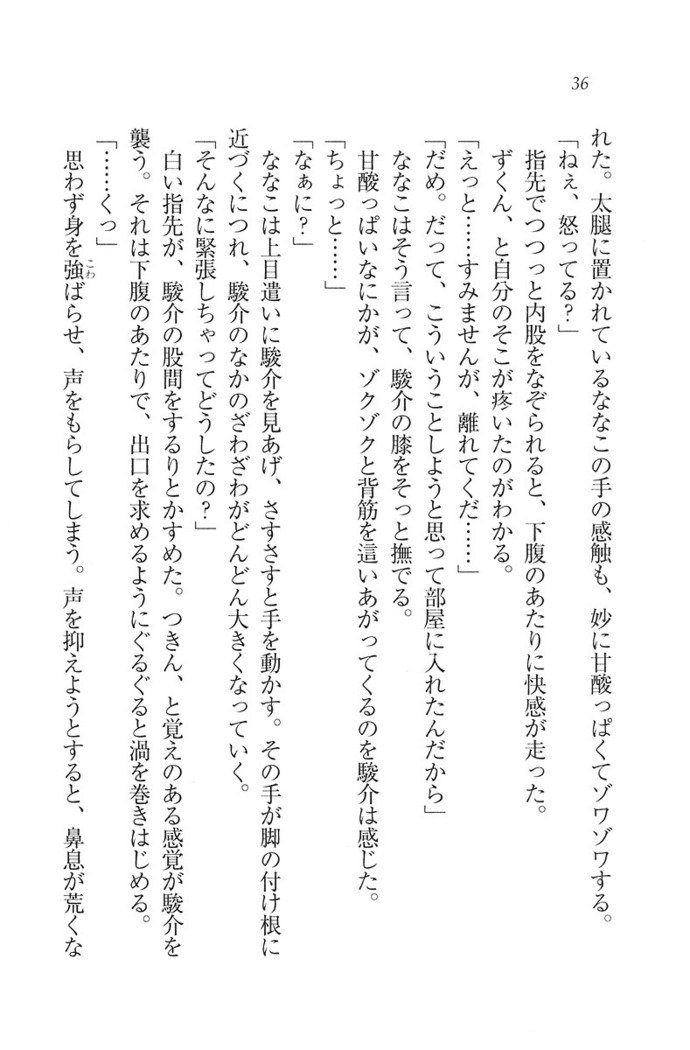 36
れた。太腿に置かれているななこの手の感触も、妙に甘酸っぱくてゾワゾワする。
「ねぇ、怒ってる?」
指先でつつっと内股をなぞられると、下腹のあたりに快感が走った。
ずくん、と自分のそこが疼いたのがわかる。
「えっと……すみませんが、離れてくだ……」
「だめ。だって、こういうことしようと思って部屋に入れたんだから」
ななこはそう言って、駿介の膝をそっと撫でる。
甘酸っぱいなにかが、ゾクゾクと背筋を這いあがってくるのを駿介は感じた。
「ちょっと……」
「なぁに?」
ななこは上目遣いに駿介を見あげ、さすさすと手を動かす。その手が脚の付け根に
近づくにつれ、駿介のなかのざわざわがどんどん大きくなっていく。
「そんなに緊張しちゃってどうしたの?」
白い指先が、駿介の股間をするりとかすめた。つきん、と覚えのある感覚が駿介を
襲う。それは下腹のあたりで、出口を求めるようにぐるぐると渦を巻きはじめる。
「……くっ」
思わず身を強こわばらせ、声をもらしてしまう。声を抑えようとすると、鼻息が荒くな